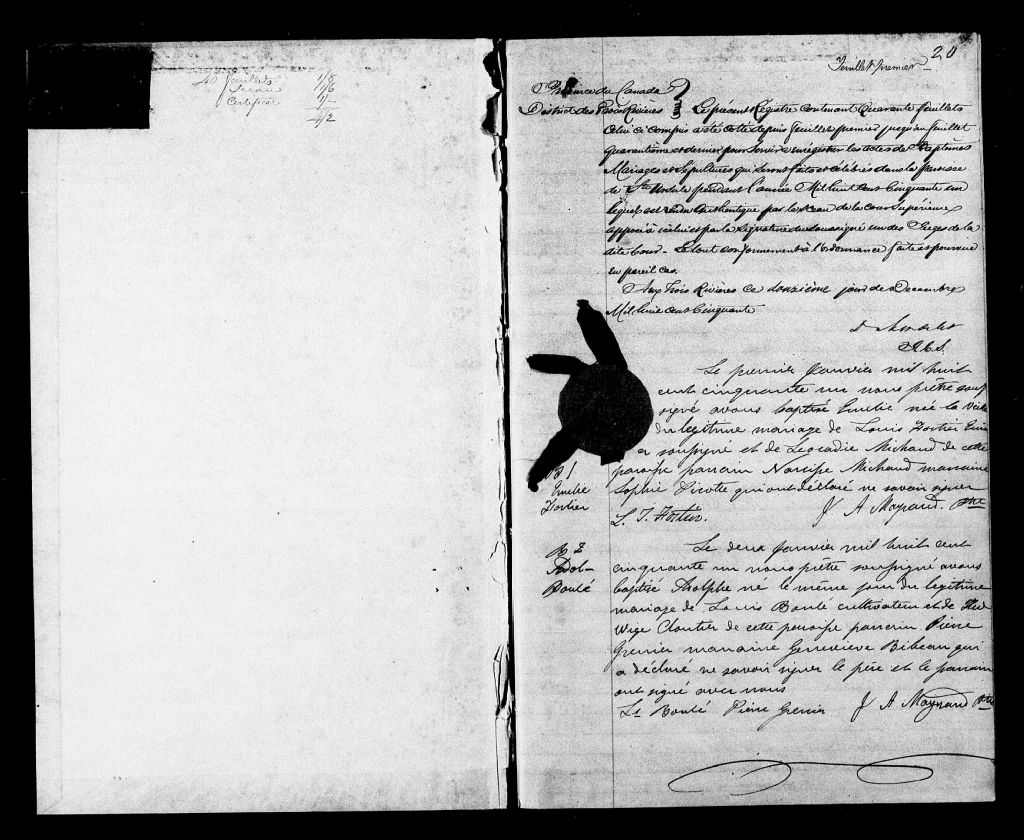 40 feuillets 1/8
Sceau 1/6
Certificat 1/-
4/2
20
Feuillet premier
Province du Canada
District des Trois Rivières } Le présent Registre contenant Quarante feuillets
Celui ci compris a été cotté depuis feuillet premier jusqu'au feuillet
quarantième et dernier pour servir à enregistrer les actes de Baptêmes
Mariages et Sépultures qui seront faits et célébrés dans la Paroisse
de Ste Ursule pendant l'année Mil huit cent Cinquante un
lequel est rendu Authentique par le sceau de la Cour Supérieure
apposé à icelui et par la Signature du Soussigné un des Juges de la
dite Cour. Le tout conformément à l'Ordonnance faite et pourvue
en pareil cas.
Aux Trois Rivières ce douzième jour de Décembre
Mil huit cent Cinquante
J.C.S.
Le premier Janvier mil huit
cent cinquante un nous prêtre sous
signé avons baptisé Emélie née la veille
du légitime mariage de Louis Fortier
soussigné et de Léocadie Michaud de cette
B 1
Emélie
Fortier
paroisse parrain Narcisse Michaud marraine
Sophie Picotte qui ont déclaré ne savoir signer
L. J. Fortier. J A Mayrand. Ptre
B 2
Adol-
Boulé
Le deux Janvier mil huit cent
cinquante un nous prêtre soussigné avons
baptisé Adolphe né le même jour du légitime
mariage de Louis Boulé cultivateur et de Hed
wige Cloutier de cette paroisse parrain Pierre
Grenier marraine Geneviève Bibeau qui
a déclaré ne savoir signer le père et le parrain
ont signé avec nous
Ls Boulé Pierre Grenier J A Mayrand Ptre